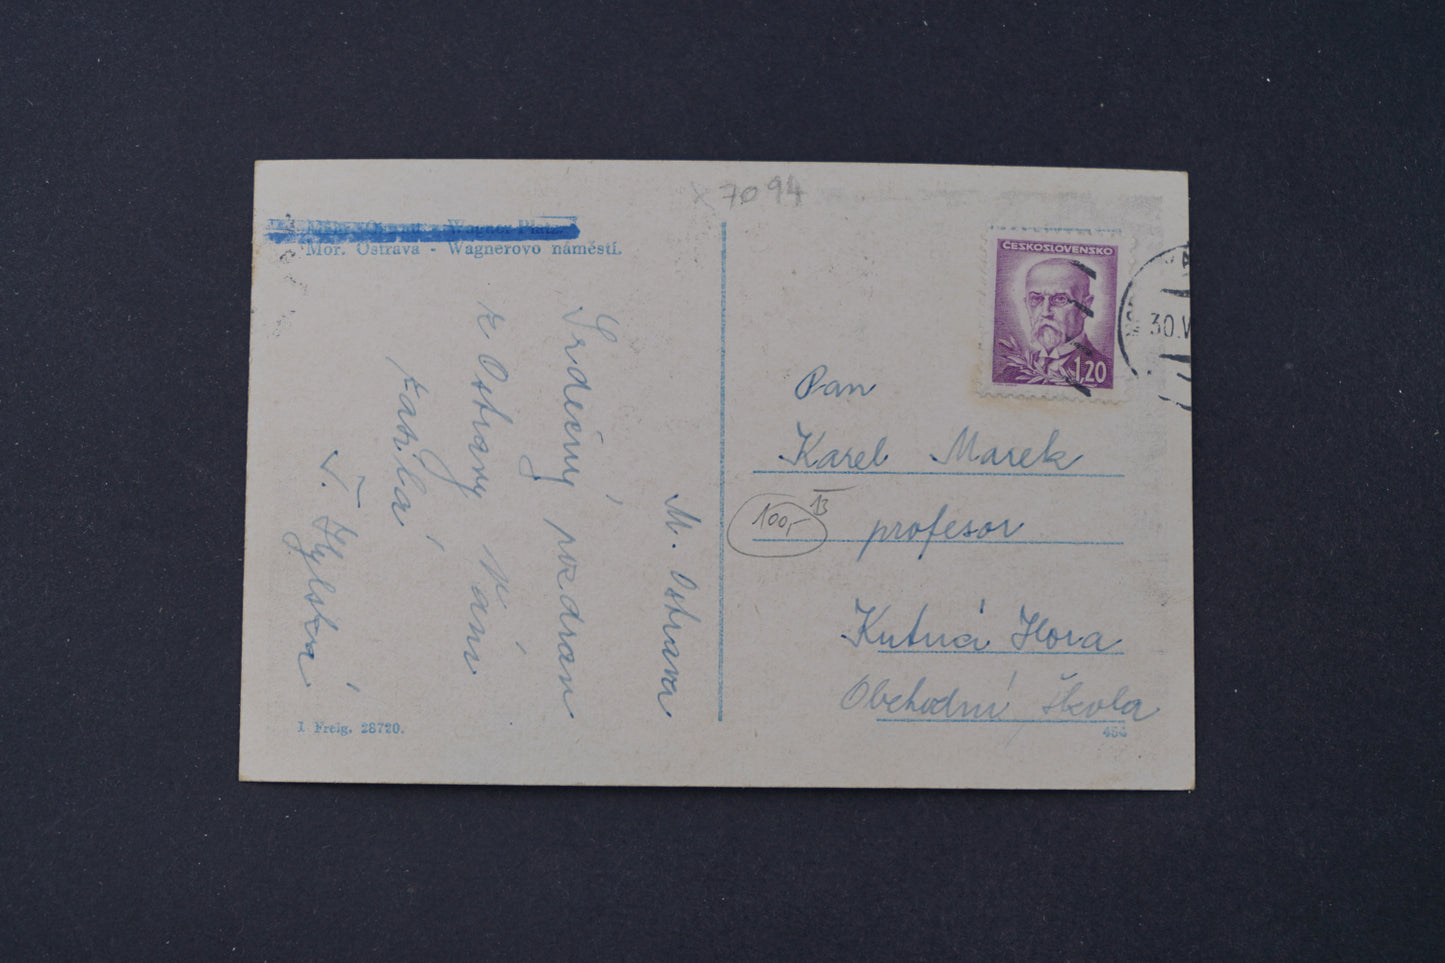 x 7094
Mähr. Ostrau - Wagner-Platz
Mor. Ostrava - Wagnerovo náměstí.
M. Ostrava
Srdečný pozdrav
z Ostravy Vám
zasílá
V.
I Freig. 28720.
ČESKOSLOVENSKO
1,20
30.V
Pan
Karel Marek
100,-
13
profesor
Kutná Hora
Obchodní škola